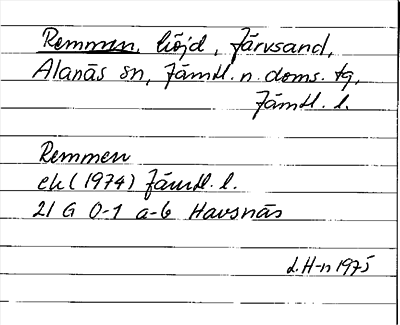 Remmen, höjd, Järvsand,
Alanäs sn, Jämtl. n. doms. tg,
Jämtl. l.
Remmen
ek (1974) Jämtl. l.
21 G 0-1 a-b Havsnäs
L. H-n 1975